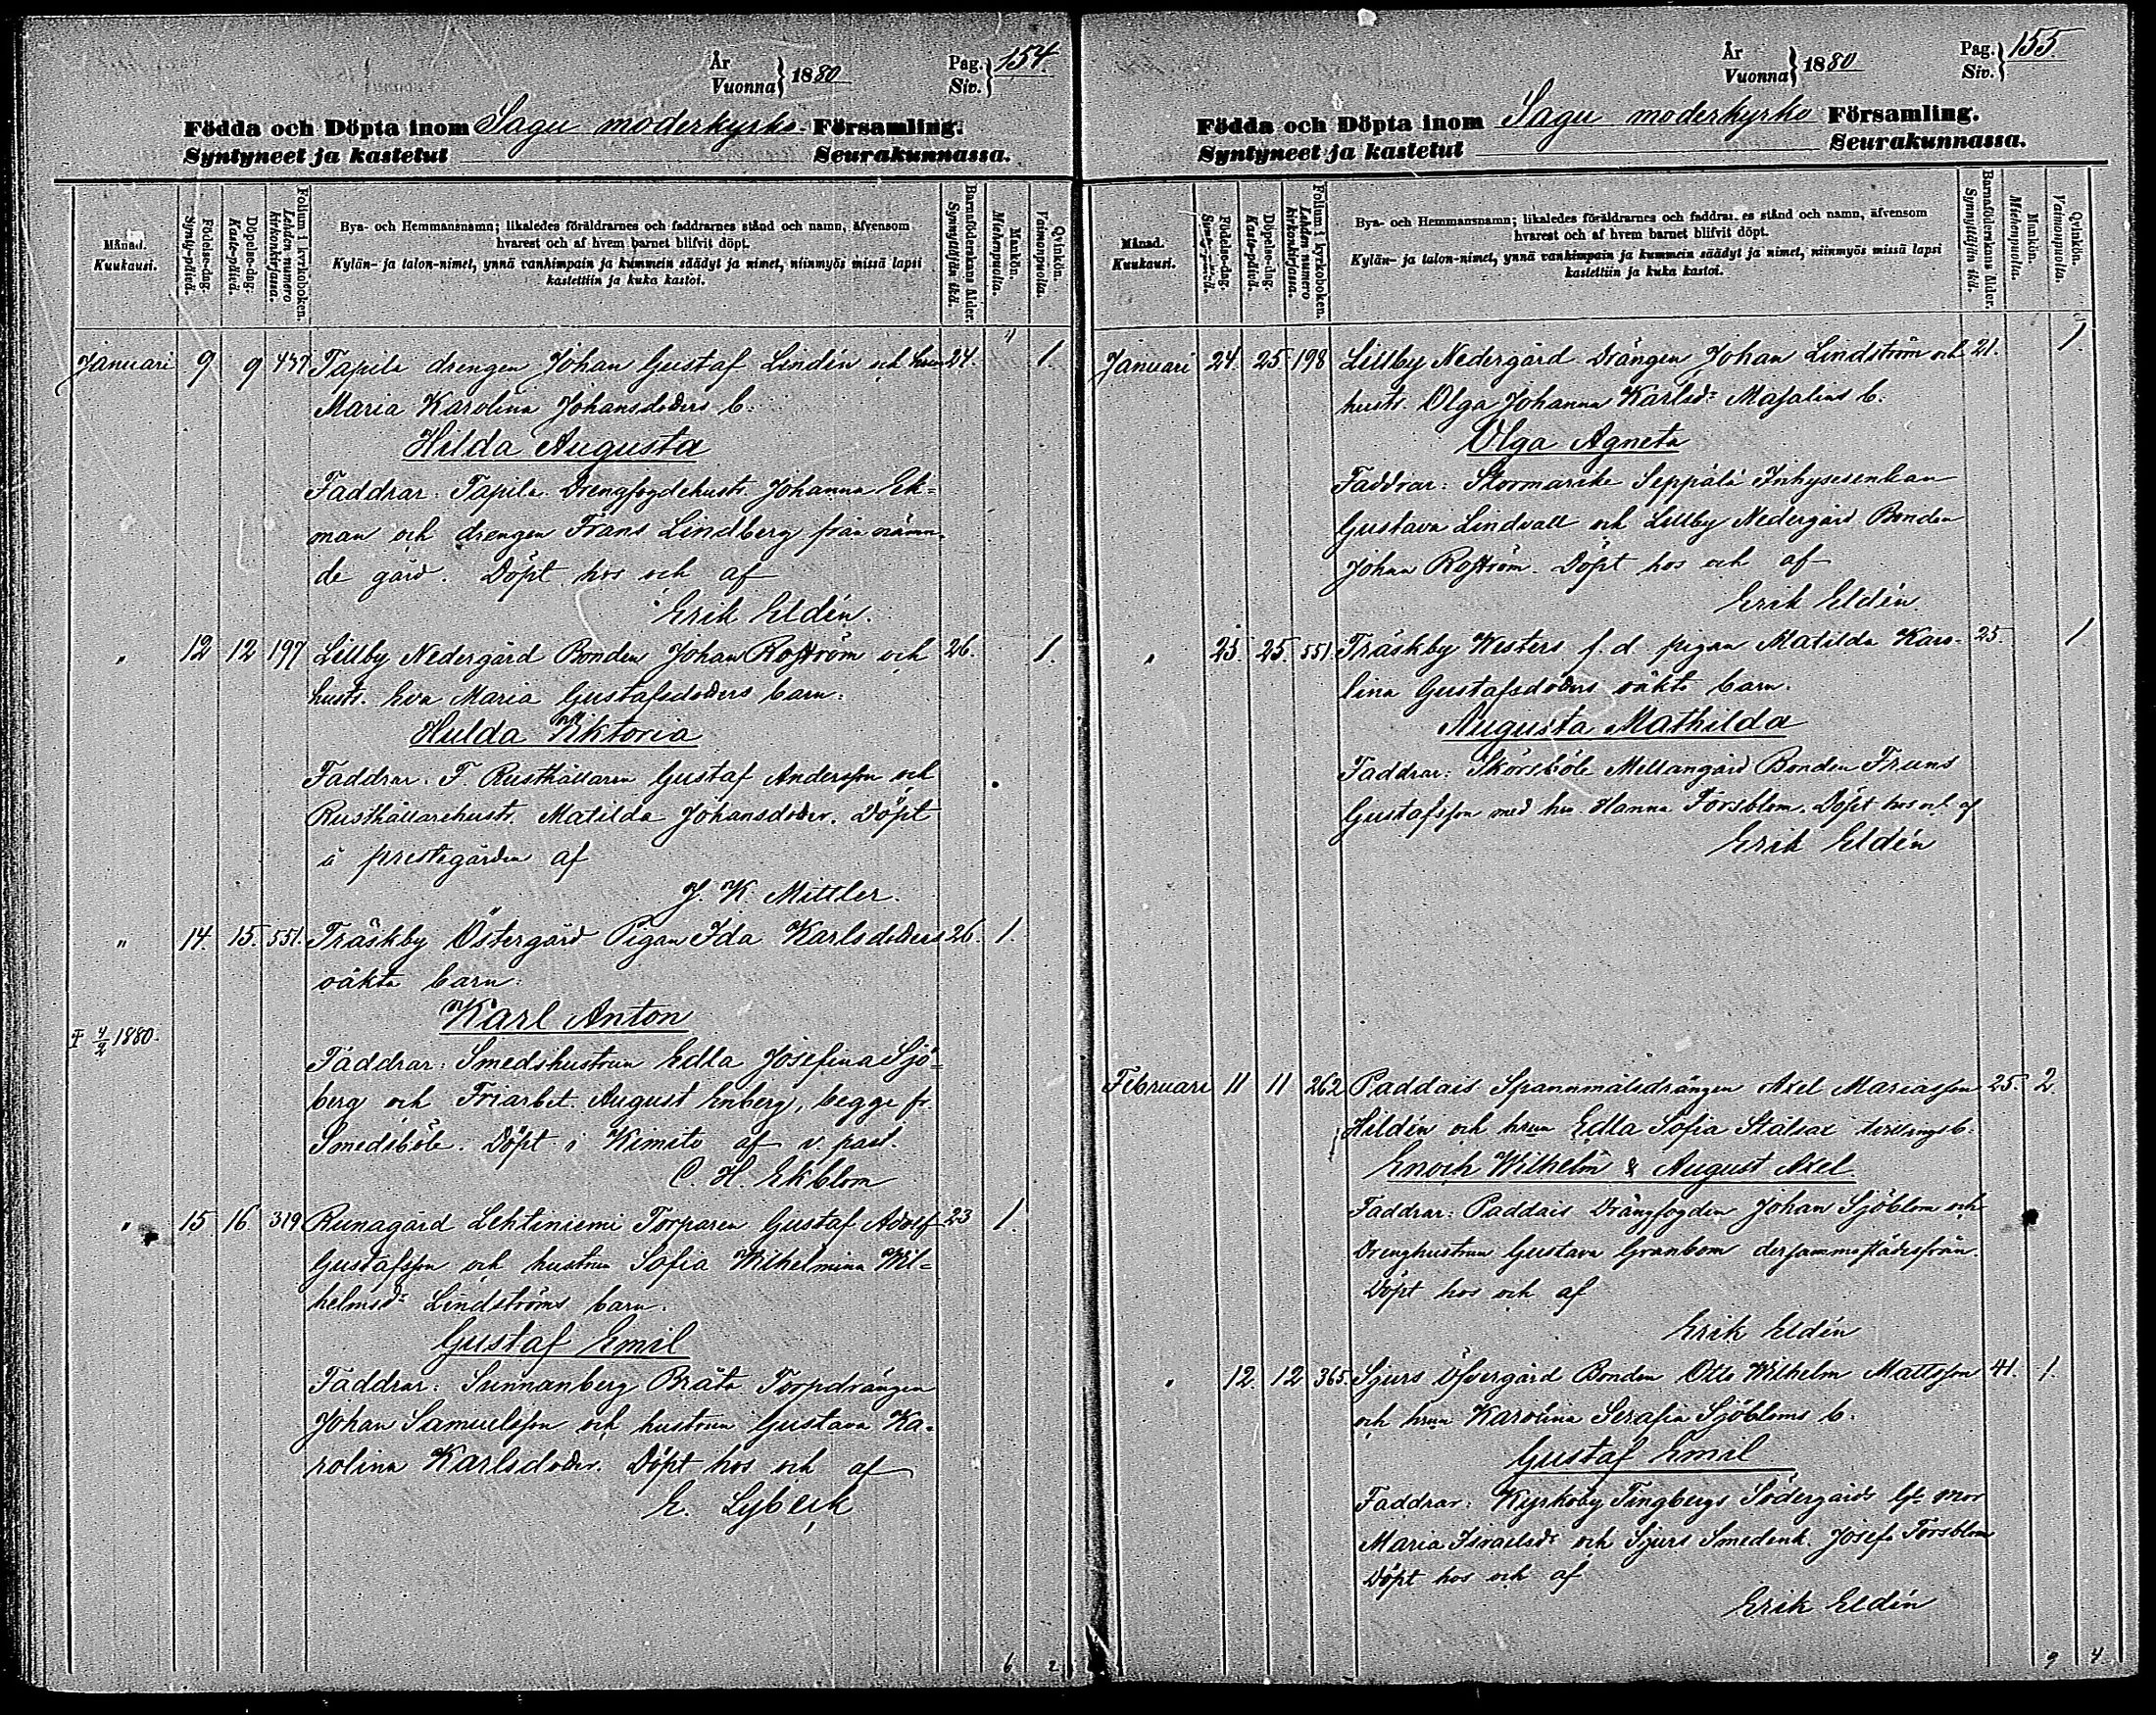 År
Vuonna } 1880
Pag.
Siv. } 154
Födda och Döpta inom Sagu moderkyrko- Församling.
Syntyneet ja kastetut Seurakunnassa.
Månad.
Kuukausi.
Födelse-dag.
Synty-päivä.
Döpelse-dag.
Kaste-päivä.
Folium i kyrkoboken.
Lehden numero
kirkonkirjassa.
Bya- och Hemmansnamn; likaledes föräldrarnes och faddrarnes stånd och namn, äfvensom
hvarest och af hvem barnet blifvit döpt.
Kylän- ja talon-nimet, ynnä vanhimpain ja kummein säädyt ja nimet, niinmyös missä lapsi
kastettiin ja kuka kastoi.
Barnaföderskans ålder.
Synnyttäjän ikä.
Mankön.
Miehenpuolta.
Qvinkön.
Vaimonpuolta.
Januari 9 9 437 Tapila drengen Johan Gustaf Lindén och hrun 24. 1.
Maria Karolina Johansdoters b.
Hilda Augusta
Faddrar: Tapila Drengfogdehustr. Johanna Ek=
man och drengen Frans Lindberg från nämn-
de gård. Döpt hos och af
Erik Eldén.
" 12 12 197 Lillby Nedergård Bonden Johan Roström och 26. 1.
hustr. Eva Maria Gustafsdoters barn:
Hulda Viktoria
Faddrar. F. Rusthållaren Gustaf Andersson och
Rusthållarehustr. Matilda Johansdoter. Döpt
å prestegården af
J. K. Mittler.
" 14. 15. 551. Träskby Östergård Pigan Ida Karlsdoters 26. 1.
oäkta barn:
Karl Anton
† 4/2 1880.
Faddrar: Smedshustrun Edla Josefina Sjö=
berg och Friarbet. August Enberg, begge fr.
Smedsböle. Döpt i Kimito af v. past.
C. H. Ekblom
" 15. 16. 319 Runagård Lehtiniemi Torparen Gustaf Adolf 23 1.
Gustafsson och hustrun Sofia Wilhelmina Wil=
helmsdr Lindströms barn.
Gustaf Emil
Faddrar: Sunnanberg Bråta Torpdrängen
Johan Samuelsson och hustrun Gustava Ka-
rolina Karlsdoter. Döpt hos och af
E. Lybeck
6 2
År
Vuonna } 1880
Pag.
Siv. } 155.
Födda och Döpta inom Sagu moderkyrko Församling.
Syntyneet ja kastetut Seurakunnassa.
Månad.
Kuukausi.
Födelse-dag.
Synty-päivä.
Döpelse-dag.
Kaste-päivä.
Folium i kyrkoboken.
Lehden numero
kirkonkirjassa.
Bya- och Hemmansnamn; likaledes föräldrarnes och faddrar. es stånd och namn, äfvensom
hvarest och af hvem barnet blifvit döpt.
Kylän- ja talon-nimet, ynnä vanhimpain ja kummein säädyt ja nimet, niinmyös missä lapsi
kastettiin ja kuka kastoi.
Barnaföderskans ålder.
Synnyttäjän ikä.
Mankön.
Miehenpuolta.
Qvinkön.
Vaimonpuolta.
Januari 24. 25 198 Lillby Nedergård Drängen Johan Lindström och 21. 1.
hustr. Olga Johanna Karlsdr Majalins b.
Olga Agneta
Faddrar: Stormarike Seppälä Inhysesenkan
Gustava Lindvall och Lillby Nedergård Bonden
Johan Roström. Döpt hos och af
Erik Eldén
" 25. 25. 551. Träskby Westers f.d. pigan Matilda Karo- 25. 1
lina Gustafsdoters oäkta barn.
Augusta Mathilda
Faddrar: Skörsböle Mellangård Bonden Frans
Gustafsson med hu Hanna Forsblom. Döpt hos och af
Erik Eldén
Februari 11 11 262 Paddais Spannmålsdrängen Axel Mariasson 25. 2.
Hildén och hrun Edla Sofia Stålsax tvillingsb.
Enoch Wilhelm & August Axel
Faddrar: Paddais Drängfogden Johan Sjöblom och
Drenghustrun Gustava Granbom dersammastädesfrån.
Döpt hos och af
Erik Eldén
" 12. 12 365. Sjurs Öfvergård Bonden Otto Wilhelm Mattsson 41. 1.
och hrun Karolina Serafia Sjöbloms b.
Gustaf Emil
Faddrar: Kyrkoby Tingbergs Södergårds mor
Maria Israelsdr och Sjurs Smedenk. Josefa Forsblom
Döpt hos och af
Erik Eldén
9 4